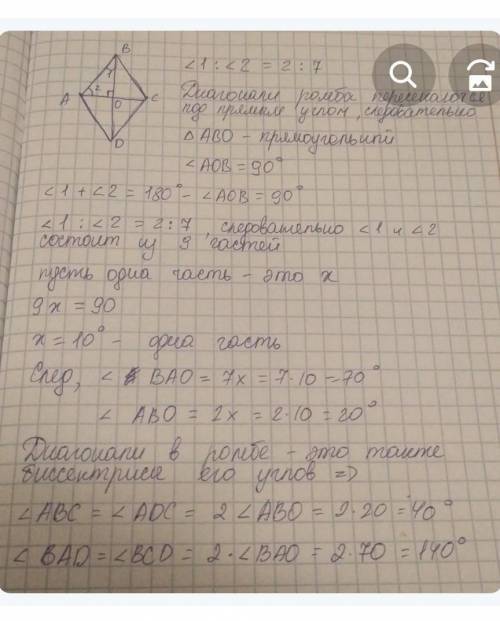 B
1
A
2
O
C
D
∠1 : ∠2 = 2 : 7
Диагонали ромба пересекаются
под прямым углом, следовательно
△ABO - прямоугольный
∠AOB = 90°
∠1 + ∠2 = 180° - ∠AOB = 90°
∠1 : ∠2 = 2 : 7, следовательно ∠1 и ∠2
состоит из 9 частей
пусть одна часть - это x
9x = 90
x = 10° - одна часть
След, ∠ BAO = 7x = 7·10 = 70°
∠ ABO = 2x = 2·10 = 20°
Диагонали в ромбе - это также
биссектрисы его углов =>
∠ABC = ∠ADC = 2∠ABO = 2·20 = 40°
∠BAD = ∠BCD = 2·∠BAO = 2·70 = 140°